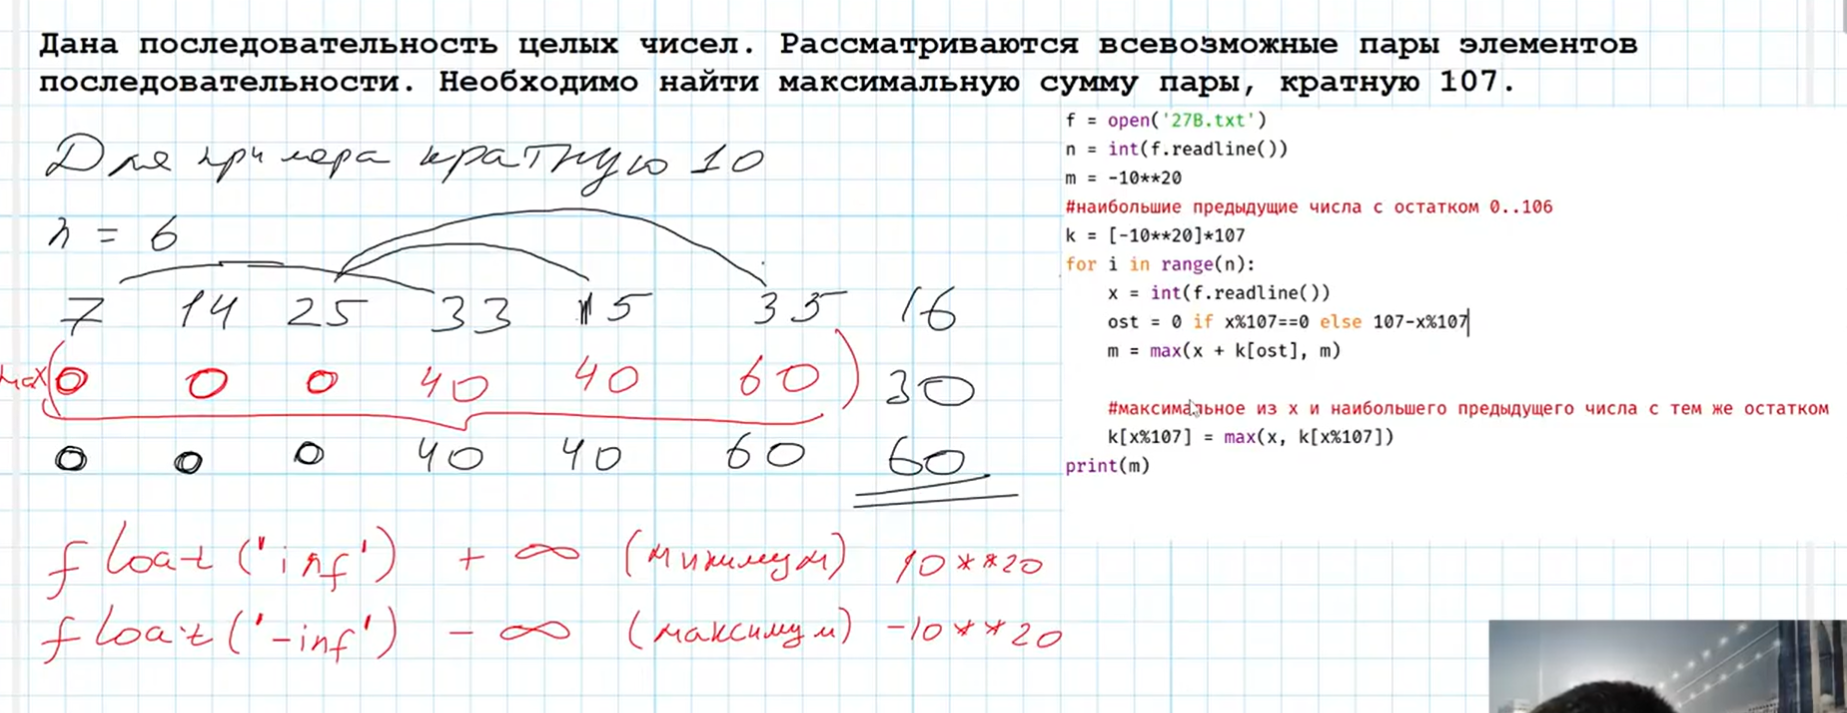 Дана последовательность целых чисел. Рассматриваются всевозможные пары элементов
последовательности. Необходимо найти максимальную сумму пары, кратную 107.
Для примера кратную 10
n = 6
7 14 25 33 15 35 16
max(0 0 0 40 40 60) 30
0 0 0 40 40 60 60
float('inf') + ∞ (минимум) 10**20
float('-inf') - ∞ (максимум) -10**20
f = open('27B.txt')
n = int(f.readline())
m = -10**20
#наибольшие предыдущие числа с остатком 0..106
k = [-10**20]*107
for i in range(n):
    x = int(f.readline())
    ost = 0 if x%107==0 else 107-x%107
    m = max(x + k[ost], m)
    #максимальное из x и наибольшего предыдущего числа с тем же остатком
    k[x%107] = max(x, k[x%107])
print(m)